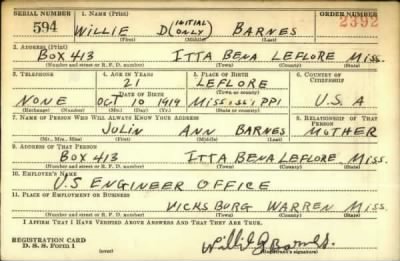 SERIAL NUMBER 1. NAME (Print) ORDER NUMBER
594 WILLIE D (INITIAL ONLY) BARNES 2392
(First) (Middle) (Last)
2. ADDRESS (Print)
BOX 413 ITTA BENA LEFLORE MISS.
(Number and street or R. F. D. number) (Town) (County) (State)
3. TELEPHONE 4. AGE IN YEARS 5. PLACE OF BIRTH 6. COUNTRY OF CITIZENSHIP
21 LEFLORE
DATE OF BIRTH (Town or county)
NONE OCT 10 1919 MISSISSIPPI U.S.A
(Exchange) (Number) (Mo.) (Day) (Yr.) (State or country)
7. NAME OF PERSON WHO WILL ALWAYS KNOW YOUR ADDRESS 8. RELATIONSHIP OF THAT PERSON
JULIN ANN BARNES MOTHER
(Mr., Mrs., Miss) (First) (Middle) (Last)
9. ADDRESS OF THAT PERSON
BOX 413 ITTA BENA LEFLORE MISS.
(Number and street or R. F. D. number) (Town) (County) (State)
10. EMPLOYER'S NAME
U.S ENGINEER OFFICE
11. PLACE OF EMPLOYMENT OR BUSINESS
VICKSBURG WARREN MISS.
(Number and street or R. F. D. number) (Town) (County) (State)
I AFFIRM THAT I HAVE VERIFIED ABOVE ANSWERS AND THAT THEY ARE TRUE.
REGISTRATION CARD
D. S. S. Form 1 (over) Willie D Barnes.
(Registrant's signature)